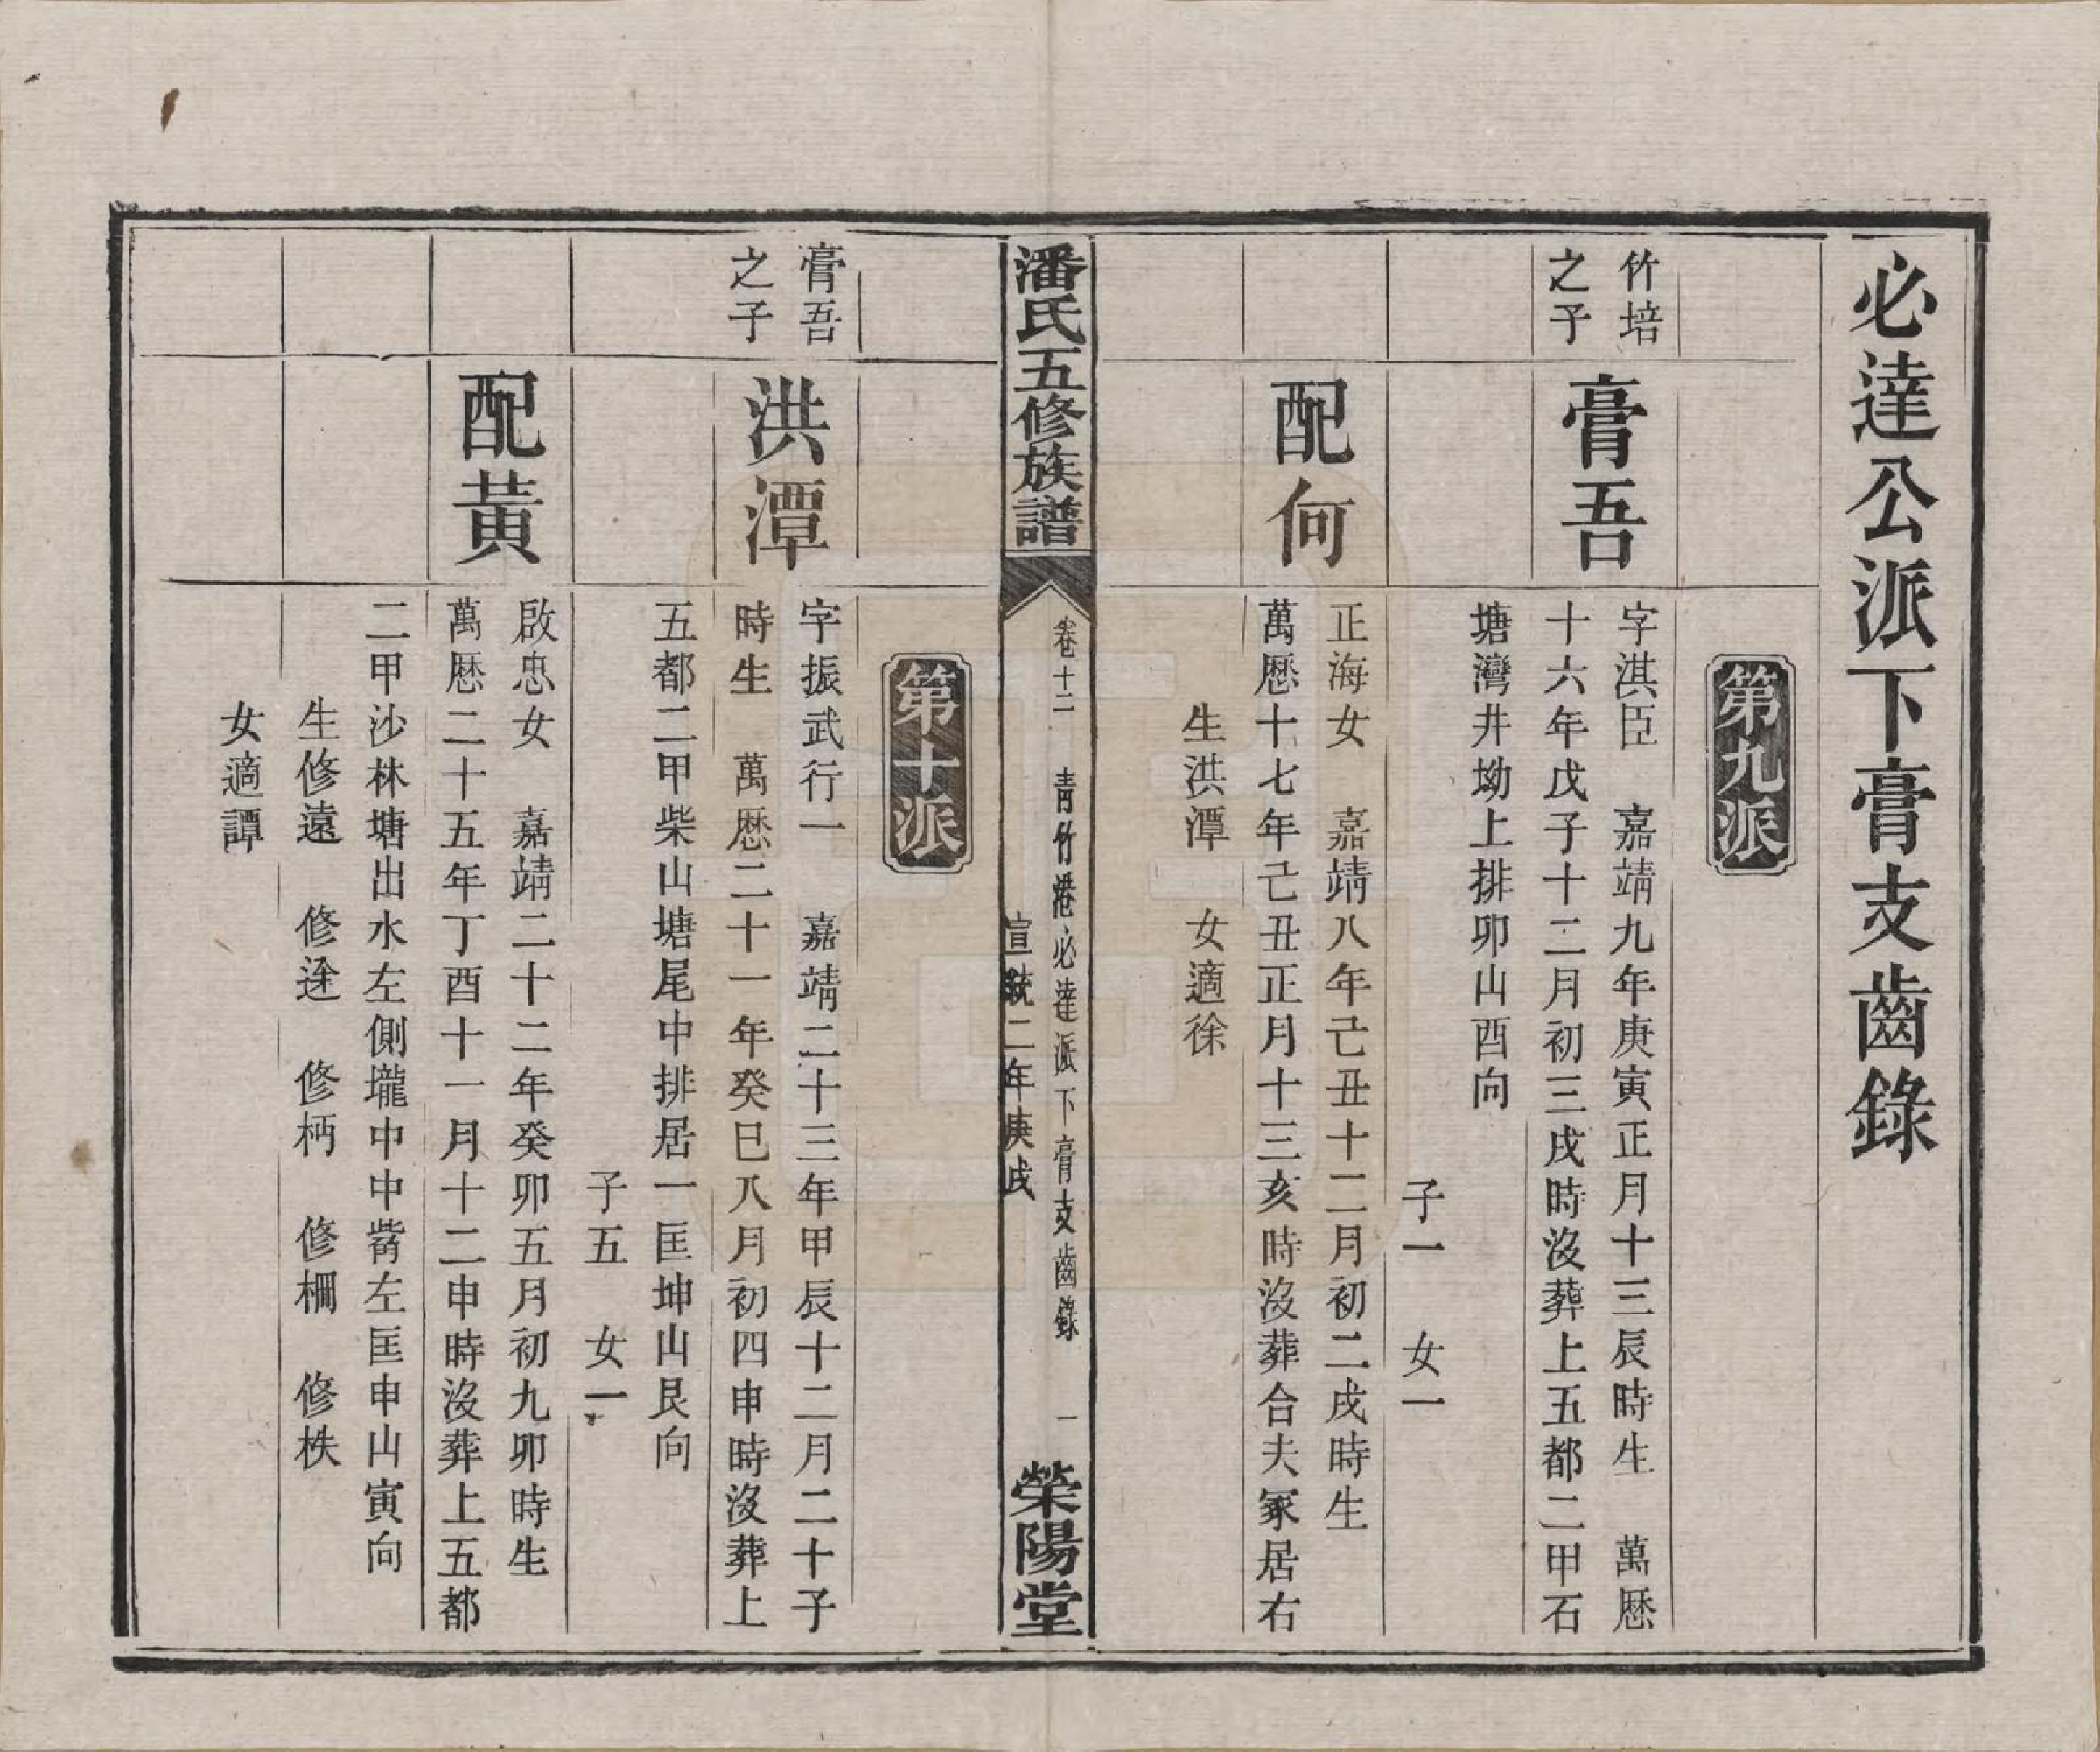 必達公派下膏支齒錄
第九派
竹培
之子
膏吾
字淇臣　嘉靖九年庚寅正月十三辰時生　萬厯
十六年戊子十二月初三戌時沒葬上五都二甲石
塘灣井坳上排卯山酉向
子一　女一
配何
正海女　嘉靖八年己丑十二月初二戌時生
萬厯十七年己丑正月十三亥時沒葬合夫冢居右
生洪潭　女適徐
潘氏五修族譜
卷十二　青竹港必達派下膏支齒錄　一
宣統二年庚戌
榮陽堂
第十派
膏吾
之子
洪潭
字振武行一　嘉靖二十三年甲辰十二月二十子
時生　萬厯二十一年癸巳八月初四申時沒葬上
五都二甲柴山塘尾中排居一匡坤山艮向
子五　女一
配黃
啟忠女　嘉靖二十二年癸卯五月初九卯時生
萬厯二十五年丁酉十一月十二申時沒葬上五都
二甲沙林塘出水左側壠中中嘴左匡申山寅向
生修遠　修𨒰　修柄　修棚　修柣
女適譚